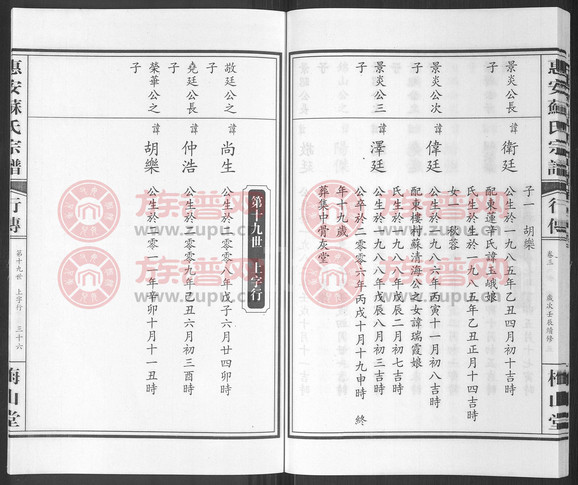 惠安蘇氏宗譜
行傳
卷三
歲次壬辰續修
梅山堂
景炎公長子
諱衛廷
公生於一九八五年乙丑三月初十吉時
配東蓮辛氏諱玉娥娘
氏生於一九八五年乙丑正月十四吉時
子一 胡樂
女一
景炎公次子
諱偉廷
公生於一九八六年丙寅十一月初八吉時
配東樓村蘇清海公之女諱瑞霞娘
氏生於一九八八年戊辰二月初七吉時
景炎公三子
諱澤廷
公生於一九八八年戊辰八月初三吉時
公卒於二零零六年丙戌十月十九申時 終
年十九歲
葬集中骨灰堂
第十九世 上字行
敬廷公之子
諱尚生
公生於二零零八年戊子六月廿四卯時
堯廷公長子
諱仲浩
公生於二零零九年己丑六月初三酉時
榮華公之子
諱胡樂
公生於二零一一年辛卯十月十一丑時
惠安蘇氏宗譜
行傳
第十九世 上字行
三十六
梅山堂
族普网
www.zupu.cn
族普网
www.zupu.cn
族普网
www.zupu.cn
族普网
www.zupu.cn